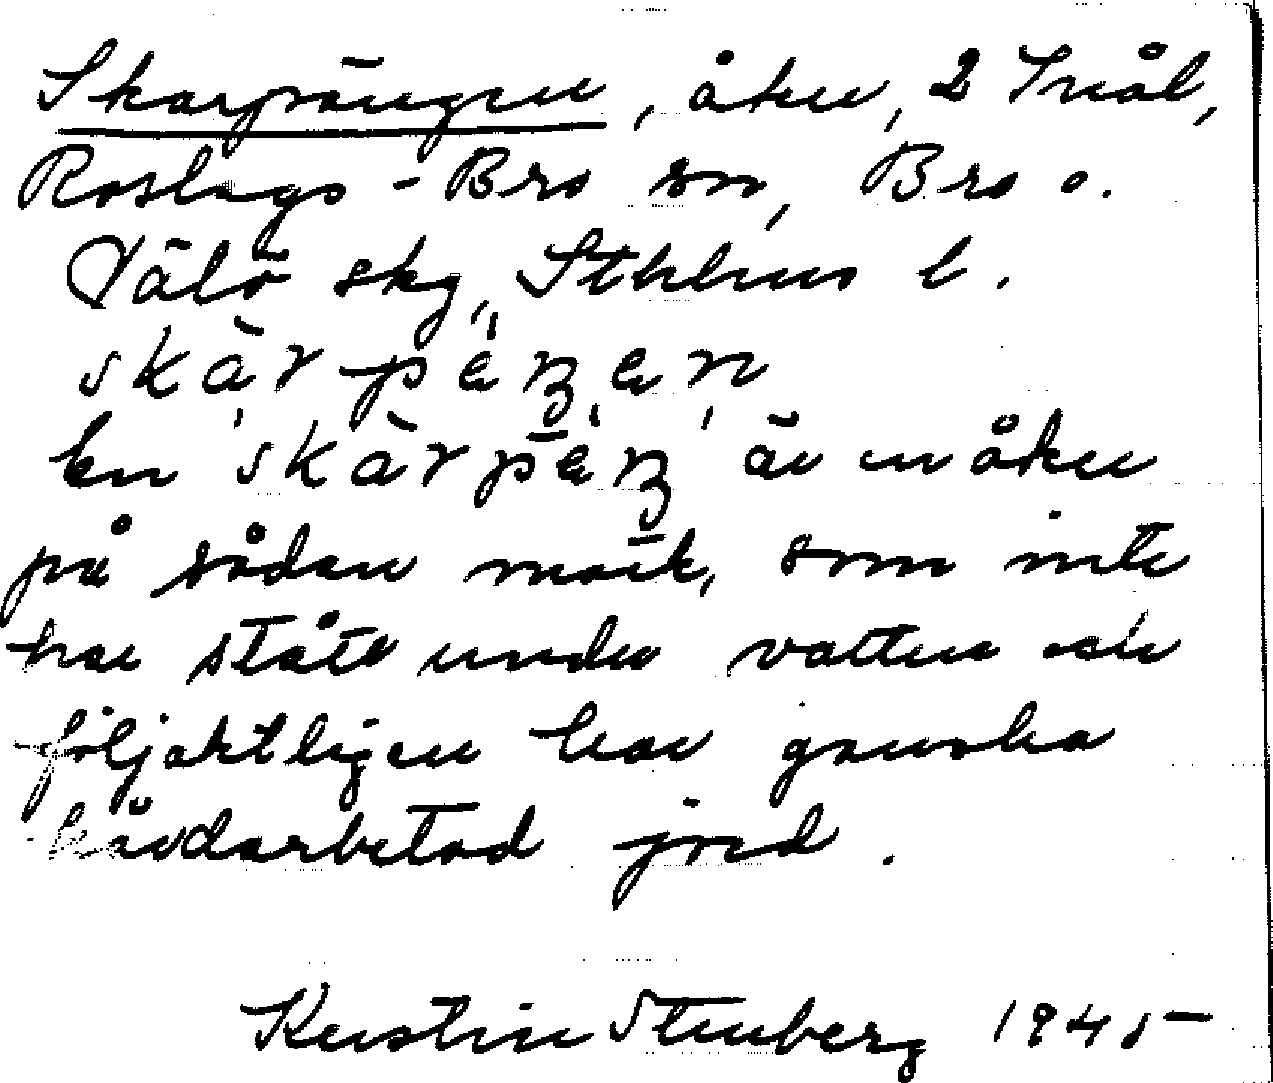 Skarpängen, åker, 2 Tröl,
Roslags-Bro sn, Bro o.
Välö skg, Sthlms l.
skàrpéŋen
En 'skàrpèŋ' är en åker
på sådan mark, som inte
har stått under vatten och
följaktligen har ganska
hårdarbetad jord.
Kerstin Stenberg 1945